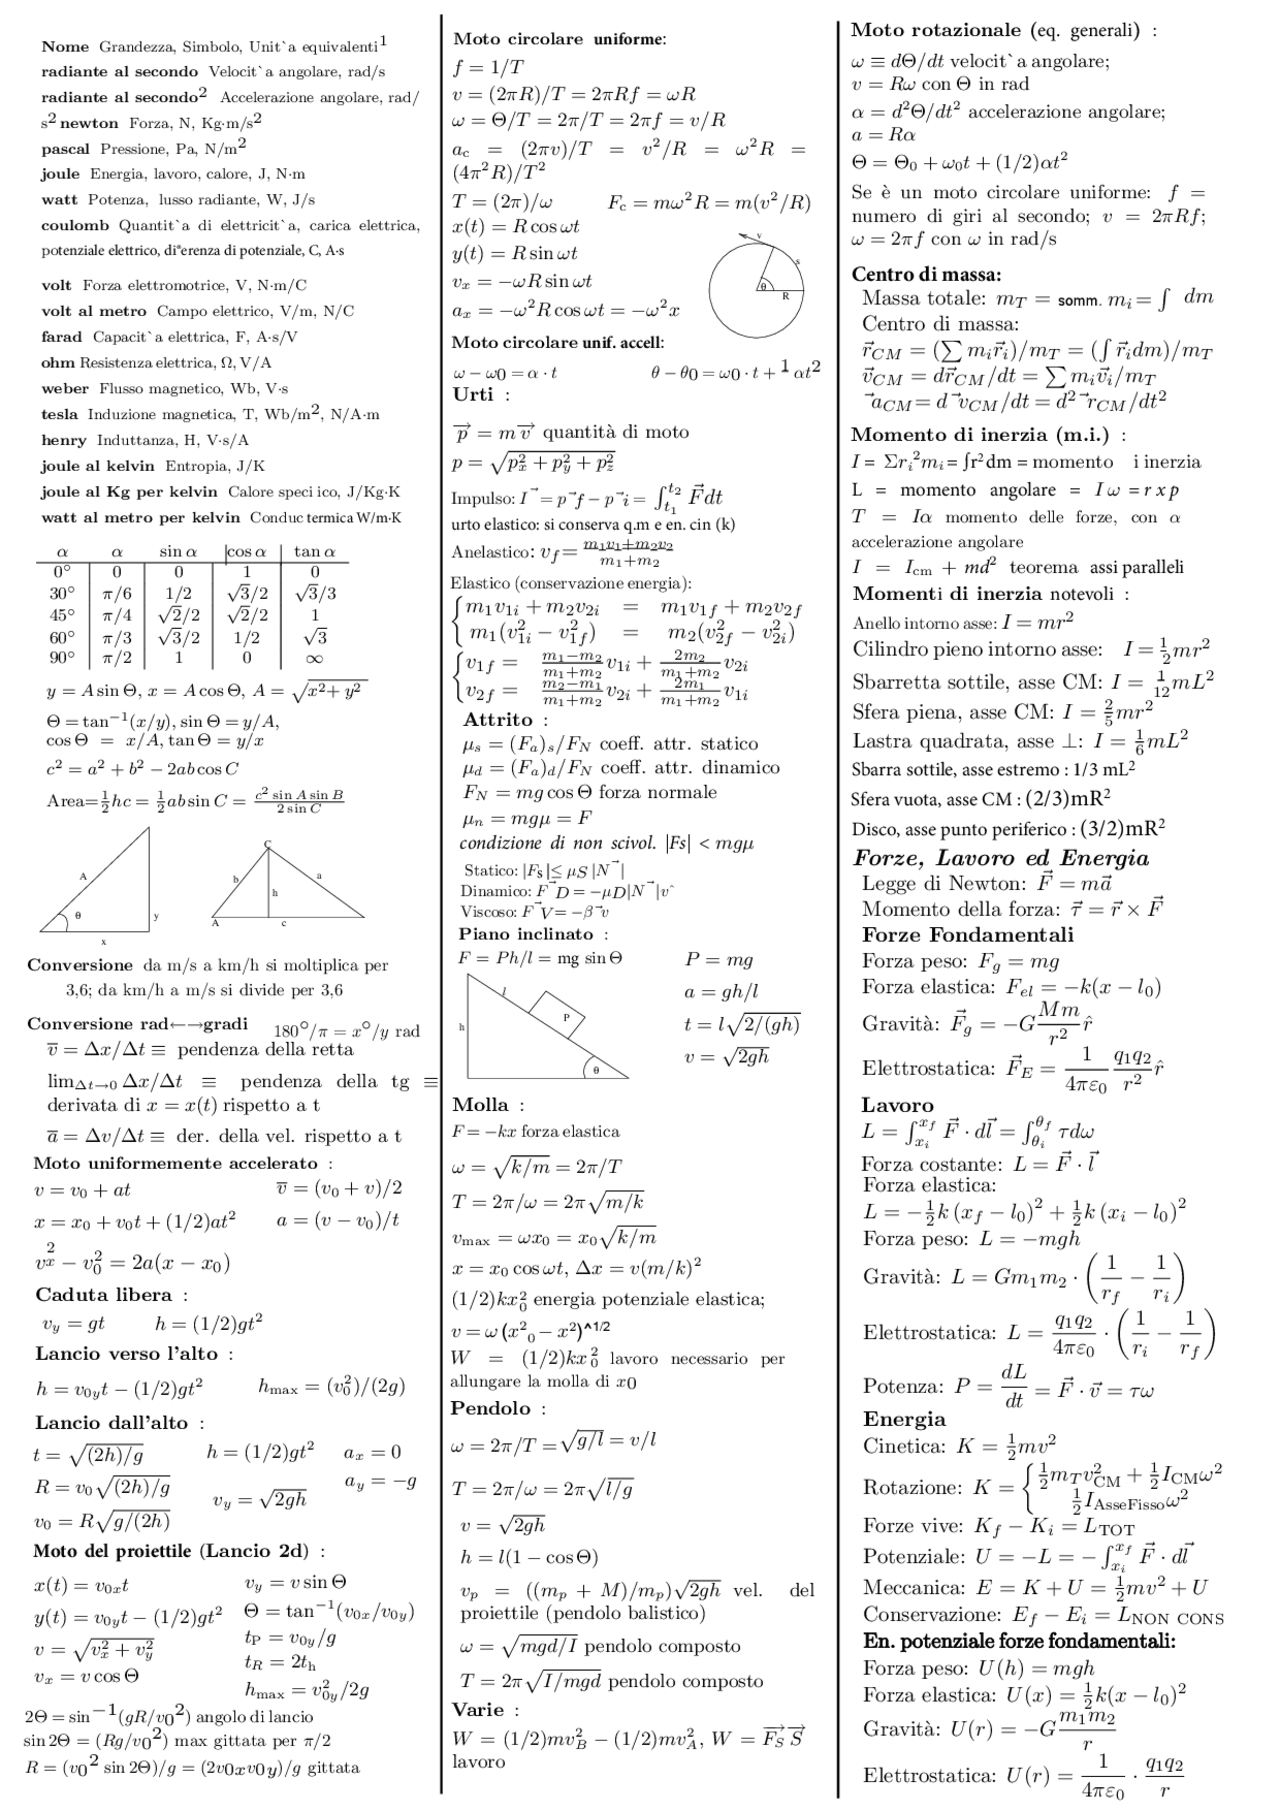 Nome Grandezza, Simbolo, Unit`a equivalenti1
radiante al secondo Velocit`a angolare, rad/s
radiante al secondo² Accelerazione angolare, rad/
s² newton Forza, N, Kg·m/s²
pascal Pressione, Pa, N/m²
joule Energia, lavoro, calore, J, N·m
watt Potenza, lusso radiante, W, J/s
coulomb Quantit`a di elettricit`a, carica elettrica,
potenziale elettrico, di"erenza di potenziale, C, A·s
volt Forza elettromotrice, V, N·m/C
volt al metro Campo elettrico, V/m, N/C
farad Capacit`a elettrica, F, A·s/V
ohm Resistenza elettrica, Ω, V/A
weber Flusso magnetico, Wb, V·s
tesla Induzione magnetica, T, Wb/m², N/A·m
henry Induttanza, H, V·s/A
joule al kelvin Entropia, J/K
joule al Kg per kelvin Calore speci ico, J/Kg·K
watt al metro per kelvin Conduc termica W/m·K
α α sin α cos α tan α
0° 0 0 1 0
30° π/6 1/2 √3/2 √3/3
45° π/4 √2/2 √2/2 1
60° π/3 √3/2 1/2 √3
90° π/2 1 0 ∞
y = A sin Θ, x = A cos Θ, A = √(x² + y²)
Θ = tan⁻¹(x/y), sin Θ = y/A,
cos Θ = x/A, tan Θ = y/x
c² = a² + b² − 2ab cos C
Area= ½hc = ½ab sin C = (c² sin A sin B)/(2 sin C)
A θ y x
C b a h A c
Conversione da m/s a km/h si moltiplica per
3,6; da km/h a m/s si divide per 3,6
Conversione rad←→gradi 180°/π = x°/y rad
v̅ = Δx/Δt ≡ pendenza della retta
lim Δt→0 Δx/Δt ≡ pendenza della tg ≡
derivata di x = x(t) rispetto a t
a̅ = Δv/Δt ≡ der. della vel. rispetto a t
Moto uniformemente accelerato :
v = v₀ + at v̅ = (v₀ + v)/2
x = x₀ + v₀t + (1/2)at² a = (v − v₀)/t
vₓ² − v₀² = 2a(x − x₀)
Caduta libera :
v_y = gt h = (1/2)gt²
Lancio verso l'alto :
h = v₀yt − (1/2)gt² h_max = (v₀²)/(2g)
Lancio dall'alto :
t = √((2h)/g) h = (1/2)gt² aₓ = 0
R = v₀√((2h)/g) v_y = √(2gh) a_y = −g
v₀ = R√(g/(2h))
Moto del proiettile (Lancio 2d) :
x(t) = v₀ₓt v_y = v sin Θ
y(t) = v₀yt − (1/2)gt² Θ = tan⁻¹(v₀ₓ/v₀y)
v = √(vₓ² + v_y²) t_P = v₀y/g
vₓ = v cos Θ t_R = 2t_h
h_max = v₀y²/2g
2Θ = sin⁻¹(gR/v0²) angolo di lancio
sin 2Θ = (Rg/v0²) max gittata per π/2
R = (v0² sin 2Θ)/g = (2v0xv0y)/g gittata
Moto circolare uniforme:
f = 1/T
v = (2πR)/T = 2πRf = ωR
ω = Θ/T = 2π/T = 2πf = v/R
a_c = (2πv)/T = v²/R = ω²R =
(4π²R)/T²
T = (2π)/ω F_c = mω²R = m(v²/R)
x(t) = R cos ωt
y(t) = R sin ωt
vₓ = −ωR sin ωt
aₓ = −ω²R cos ωt = −ω²x
v s θ R
Moto circolare unif. accell:
ω − ω0 = α · t θ − θ0 = ω0 · t + 1 αt²
Urti :
p⃗ = m v⃗ quantità di moto
p = √(pₓ² + p_y² + p_z²)
Impulso: I⃗ = p⃗f − p⃗i = ∫_t₁^t₂ F⃗dt
urto elastico: si conserva q.m e en. cin (k)
Anelastico: v_f = (m₁v₁+m₂v₂)/(m₁+m₂)
Elastico (conservazione energia):
m₁v₁i + m₂v₂i = m₁v₁f + m₂v₂f
m₁(v₁i² − v₁f²) = m₂(v₂f² − v₂i²)
v₁f = (m₁−m₂)/(m₁+m₂) v₁i + 2m₂/(m₁+m₂) v₂i
v₂f = (m₂−m₁)/(m₁+m₂) v₂i + 2m₁/(m₁+m₂) v₁i
Attrito :
μ_s = (F_a)_s/F_N coeff. attr. statico
μ_d = (F_a)_d/F_N coeff. attr. dinamico
F_N = mg cos Θ forza normale
μ_n = mgμ = F
condizione di non scivol. |Fs| < mgμ
Statico: |Fs| ≤ μS |N⃗|
Dinamico: F⃗D = −μD|N⃗|vˆ
Viscoso: F⃗V = −β v⃗
Piano inclinato :
F = Ph/l = mg sin Θ P = mg
a = gh/l
t = l√(2/(gh))
v = √(2gh)
l P h θ
Molla :
F = −kx forza elastica
ω = √(k/m) = 2π/T
T = 2π/ω = 2π√(m/k)
v_max = ωx₀ = x₀√(k/m)
x = x₀ cos ωt, Δx = v(m/k)²
(1/2)kx₀² energia potenziale elastica;
v = ω (x²₀ − x²)^1/2
W = (1/2)kx₀² lavoro necessario per
allungare la molla di x0
Pendolo :
ω = 2π/T = √(g/l) = v/l
T = 2π/ω = 2π√(l/g)
v = √(2gh)
h = l(1 − cos Θ)
v_p = ((m_p + M)/m_p)√(2gh) vel. del
proiettile (pendolo balistico)
ω = √(mgd/I) pendolo composto
T = 2π√(I/mgd) pendolo composto
Varie :
W = (1/2)mv_B² − (1/2)mv_A², W = F⃗_S S⃗
lavoro
Moto rotazionale (eq. generali) :
ω ≡ dΘ/dt velocit`a angolare;
v = Rω con Θ in rad
α = d²Θ/dt² accelerazione angolare;
a = Rα
Θ = Θ₀ + ω₀t + (1/2)αt²
Se è un moto circolare uniforme: f =
numero di giri al secondo; v = 2πRf;
ω = 2πf con ω in rad/s
Centro di massa:
Massa totale: m_T = somm. m_i = ∫ dm
Centro di massa:
r⃗_CM = (∑ m_i r⃗_i)/m_T = (∫ r⃗_i dm)/m_T
v⃗_CM = dr⃗_CM/dt = ∑ m_i v⃗_i/m_T
a⃗_CM = d v⃗_CM/dt = d² r⃗_CM/dt²
Momento di inerzia (m.i.) :
I = Σr_i²m_i = ∫r² dm = momento i inerzia
L = momento angolare = I ω = r x p
T = Iα momento delle forze, con α
accelerazione angolare
I = I_cm + md² teorema assi paralleli
Momenti di inerzia notevoli :
Anello intorno asse: I = mr²
Cilindro pieno intorno asse: I = ½mr²
Sbarretta sottile, asse CM: I = 1/12 mL²
Sfera piena, asse CM: I = 2/5 mr²
Lastra quadrata, asse ⊥: I = 1/6 mL²
Sbarra sottile, asse estremo : 1/3 mL²
Sfera vuota, asse CM : (2/3)mR²
Disco, asse punto periferico : (3/2)mR²
Forze, Lavoro ed Energia
Legge di Newton: F⃗ = ma⃗
Momento della forza: τ⃗ = r⃗ × F⃗
Forze Fondamentali
Forza peso: F_g = mg
Forza elastica: F_el = −k(x − l₀)
Gravità: F⃗_g = −G Mm/r² r̂
Elettrostatica: F⃗_E = 1/(4πε₀) q₁q₂/r² r̂
Lavoro
L = ∫_{x_i}^{x_f} F⃗ · dl⃗ = ∫_{θ_i}^{θ_f} τdω
Forza costante: L = F⃗ · l⃗
Forza elastica:
L = −½k (x_f − l₀)² + ½k (x_i − l₀)²
Forza peso: L = −mgh
Gravità: L = Gm₁m₂ · (1/r_f − 1/r_i)
Elettrostatica: L = q₁q₂/(4πε₀) · (1/r_i − 1/r_f)
Potenza: P = dL/dt = F⃗ · v⃗ = τω
Energia
Cinetica: K = ½mv²
Rotazione: K = { ½m_T v²_CM + ½I_CM ω²
½I_AsseFisso ω²
Forze vive: K_f − K_i = L_TOT
Potenziale: U = −L = −∫_{x_i}^{x_f} F⃗ · dl⃗
Meccanica: E = K + U = ½mv² + U
Conservazione: E_f − E_i = L_NON CONS
En. potenziale forze fondamentali:
Forza peso: U(h) = mgh
Forza elastica: U(x) = ½k(x − l₀)²
Gravità: U(r) = −G m₁m₂/r
Elettrostatica: U(r) = 1/(4πε₀) · q₁q₂/r